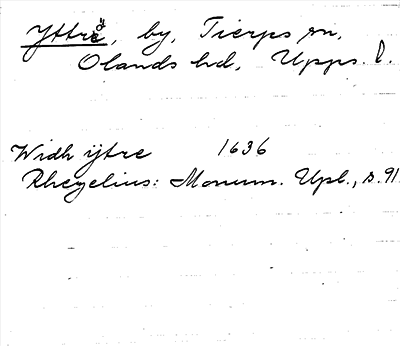 Yttrö, by, Tierps sn,
Olands hd, Upps. l.
Widh ÿtre 1636
Rhezelius: Monum. Upl., s. 91